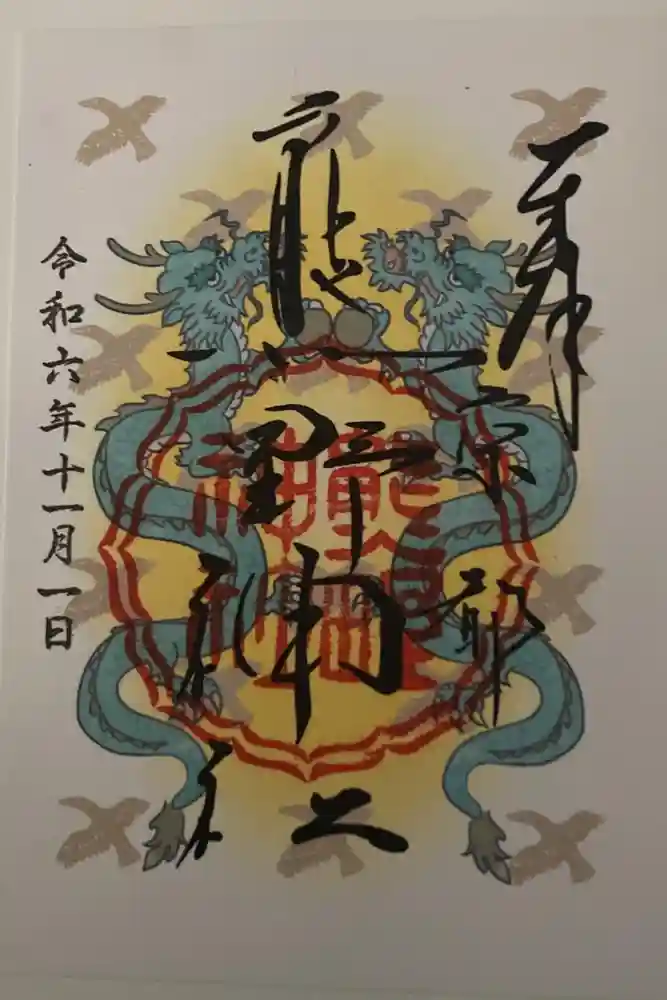 奉拝
京都
熊野神社
令和六年十一月一日